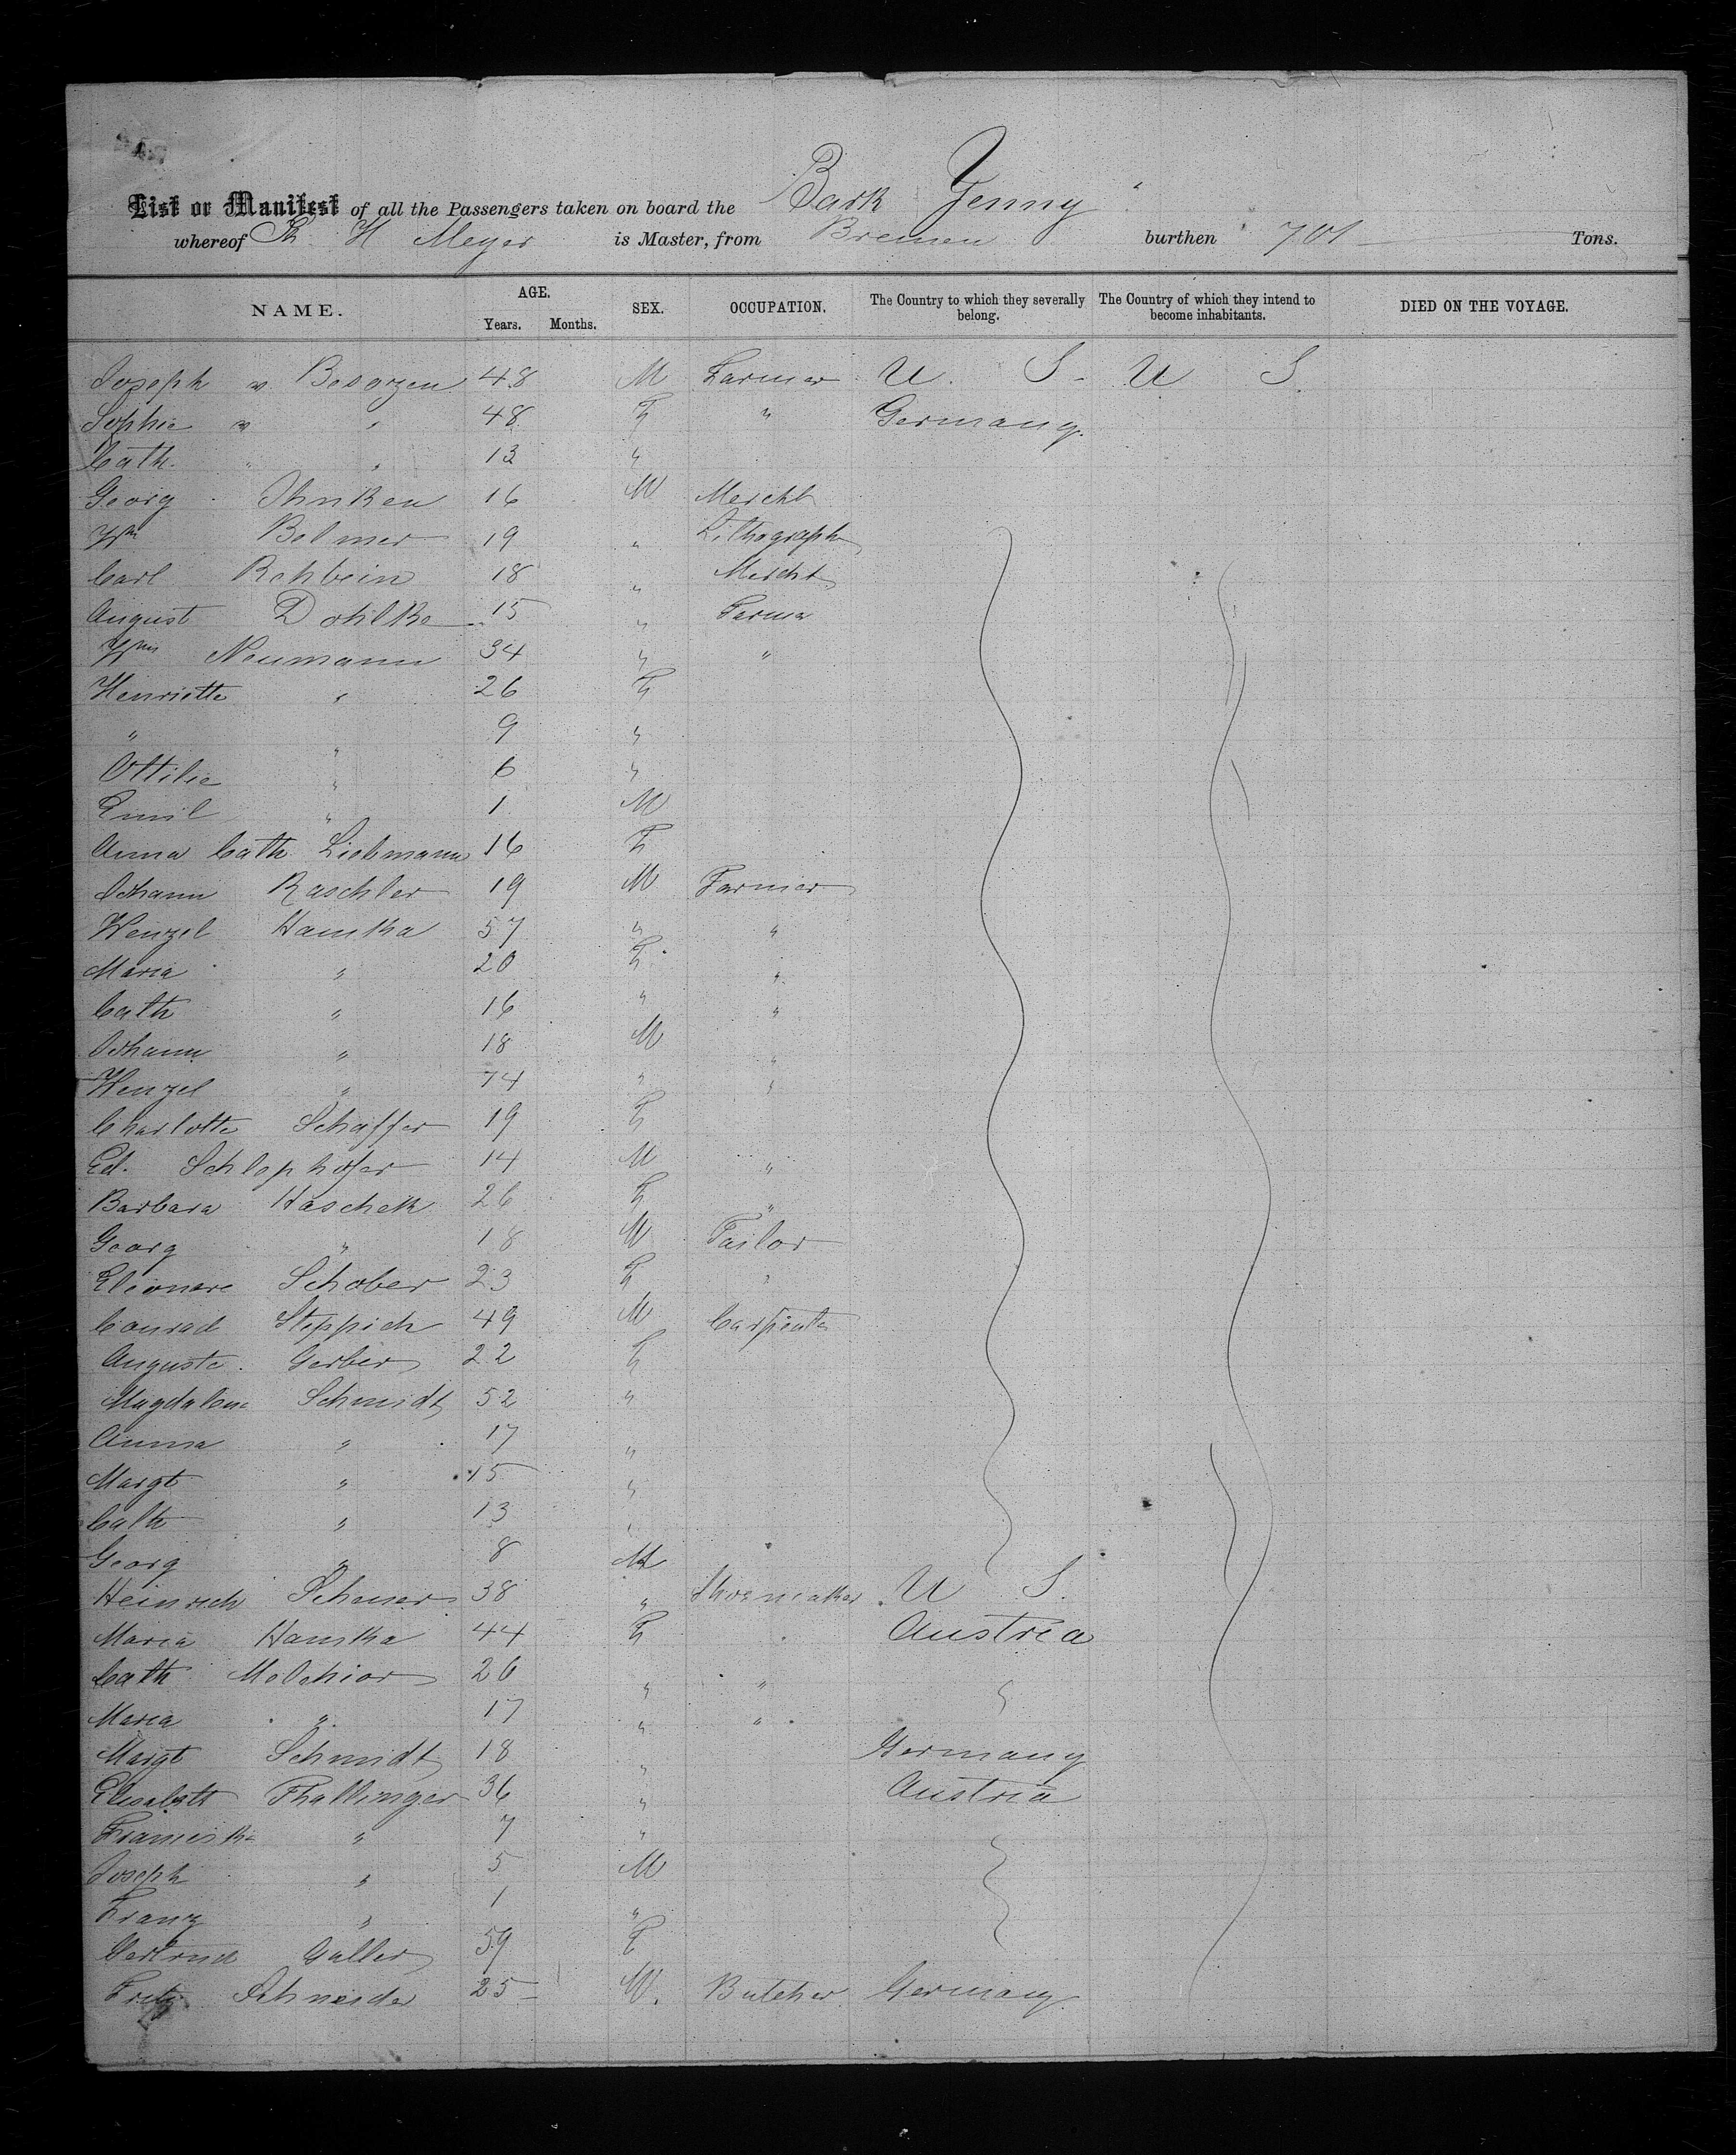 List or Manifest of all the Passengers taken on board the Bark Jenny
whereof H Meyer is Master, from Bremen burthen 701 Tons.
NAME. AGE. Years. Months. SEX. OCCUPATION. The Country to which they severally belong. The Country of which they intend to become inhabitants. DIED ON THE VOYAGE.
Joseph v. 48 M Farmer U. S. U S.
Sophie v " 48 F " Germany.
Cath. " " 13 "
Georg Ihnken 16 M Mercht
Wm Bolmer 19 " Lithograph
Carl Rehbein 18 " Mercht
August Dohlke 15 " Farmer
Wm Neumann 34 " "
Henriette " 26 F
" " 9 "
Ottilie " 6 "
Emil " 1 M
Anna Cath. Liebmann 16 F
Johann Raschler 19 M Farmer
Wenzel Hamska 57 " "
Maria " 20 F "
Cath " 16 " "
Johann " 18 M "
Wenzel " 74 " "
Charlotte Schaffer 19 F
Ed. Schlephofer 14 M "
Barbara Haschek 26 F "
Georg " 18 M Tailor
Eleonore Schober 23 F "
Conrad Steppich 49 M Carpenter
Auguste. Gerber 22 F
Magdalene Schmidt 52 "
Anna " 17 "
Margt " 15 "
Cath " 13 "
Georg " 8 M
Heinrich Scheuer 38 " Shoemaker U S.
Maria Hamska 44 F Austria
Cath Melchior 26 " " "
Maria " 17 " "
Margt Schmidt 18 " Germany
Elisabeth Thallinger 36 " Austria
Franciska " 7 "
Joseph " 5 M
Franz " 1 "
Gertrud Galler 59 F
Fritz Schneider 25 M. Butcher. Germany.